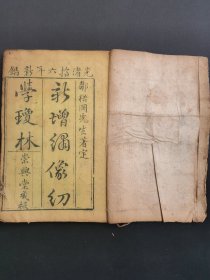 光緒拾六年新鐫
鄒梧岡先生著定
新增繡像幼
學瓊林
崇興堂藏板